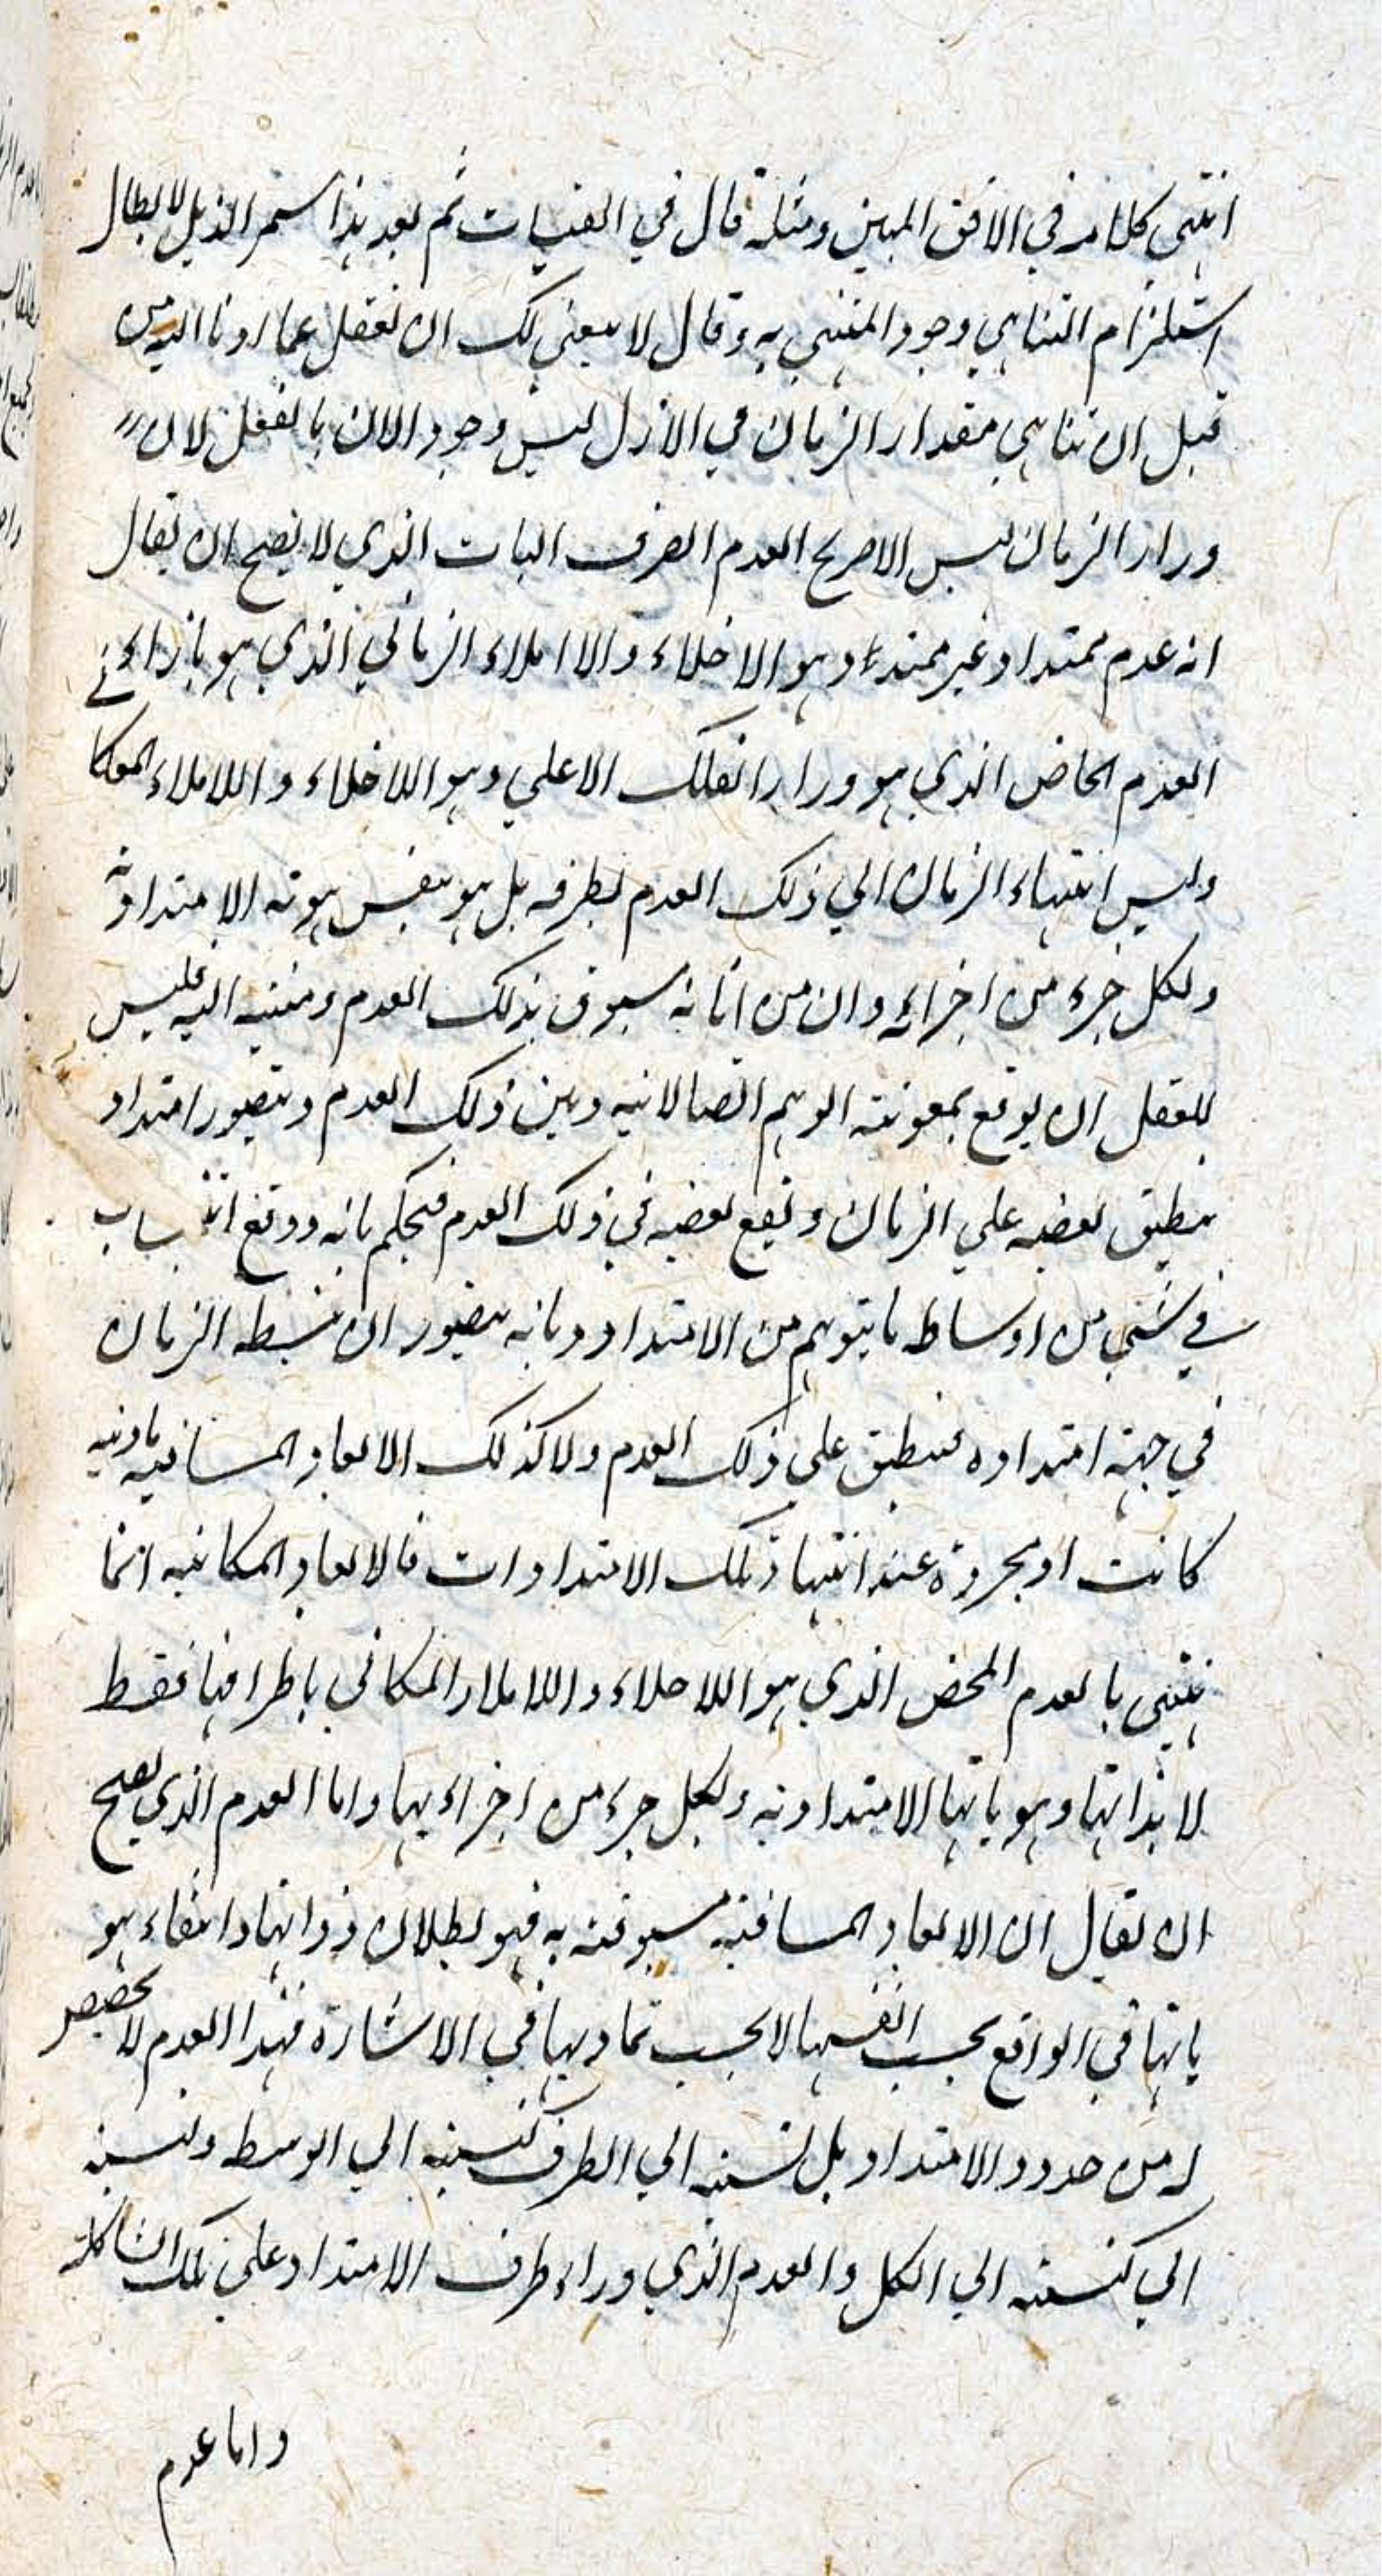 انتهى كلامه في الافق المبين ومثله قال في القبسات ثم بعد هذا شمر الذيل لابطال
استلزام التناهي وجود المنتهي به وقال لا ينبغي لك ان تغفل عما ادنا اليه من
قبل ان تناهي مقدار الزمان في الازل ليس وجود الآن بالفعل لان
وراء الزمان ليس الا صريح العدم الصرف البات الذي لا يصح ان يقال
انه عدم ممتد او غير ممتد وهو الاخلاء والا املاء الزماني الذي هو بازاء في
العدم الخاض الذي هو وراء الفلك الاعلي وهو اللاخلاء واللاملاء المكا
وليس انتهاء الزمان الي ذلك العدم بطرفه بل هو بنفس هويته الامتدادية
ولكل جزء من اجزائه وان من اناته مسبوق بذلك العدم ومنته اليه فليس
للعقل ان يوقع بمعونته الوهم اتصالا بينه وبين ذلك العدم ويتصور امتداد
ينطبق بعضه علي الزمان ويقع بعضه في ذلك العدم فيحكم بانه ووقع انتساب
في شيء من اوساطه ما يتوهم من الامتداد وبانه يتصور ان ينبسطه الزمان
في جهة امتداده فينطبق علي ذلك العدم ولا كذلك الابعاد المسافيه مادية
كانت او مجردة عند انتهاء تلك الامتدادات فالابعاد المكانيه انما
ينتهي بالعدم المحض الذي هو اللاخلاء واللاملاء المكاني باطرافها فقط
لا بذاتها وهوياتها الامتدادية ولكل جزء من اجزاء يها واما العدم الذي يصح
ان يقال ان الابعاد المسافية مسبوقته به فهو بطلان ذواتها وانتفاء هو
ياتها في الواقع بحسب انفسها لا بحسب تماديها في الاشارة فهذا العدم لا تخصيص
له من حدود الامتداد بل نسبته الي الطرف كنسبته الي الوسط ونسبته
الي كنسبته الي الكل والعدم الذي وراء طرف الامتداد علي تلك الشاكلة
واما عدم